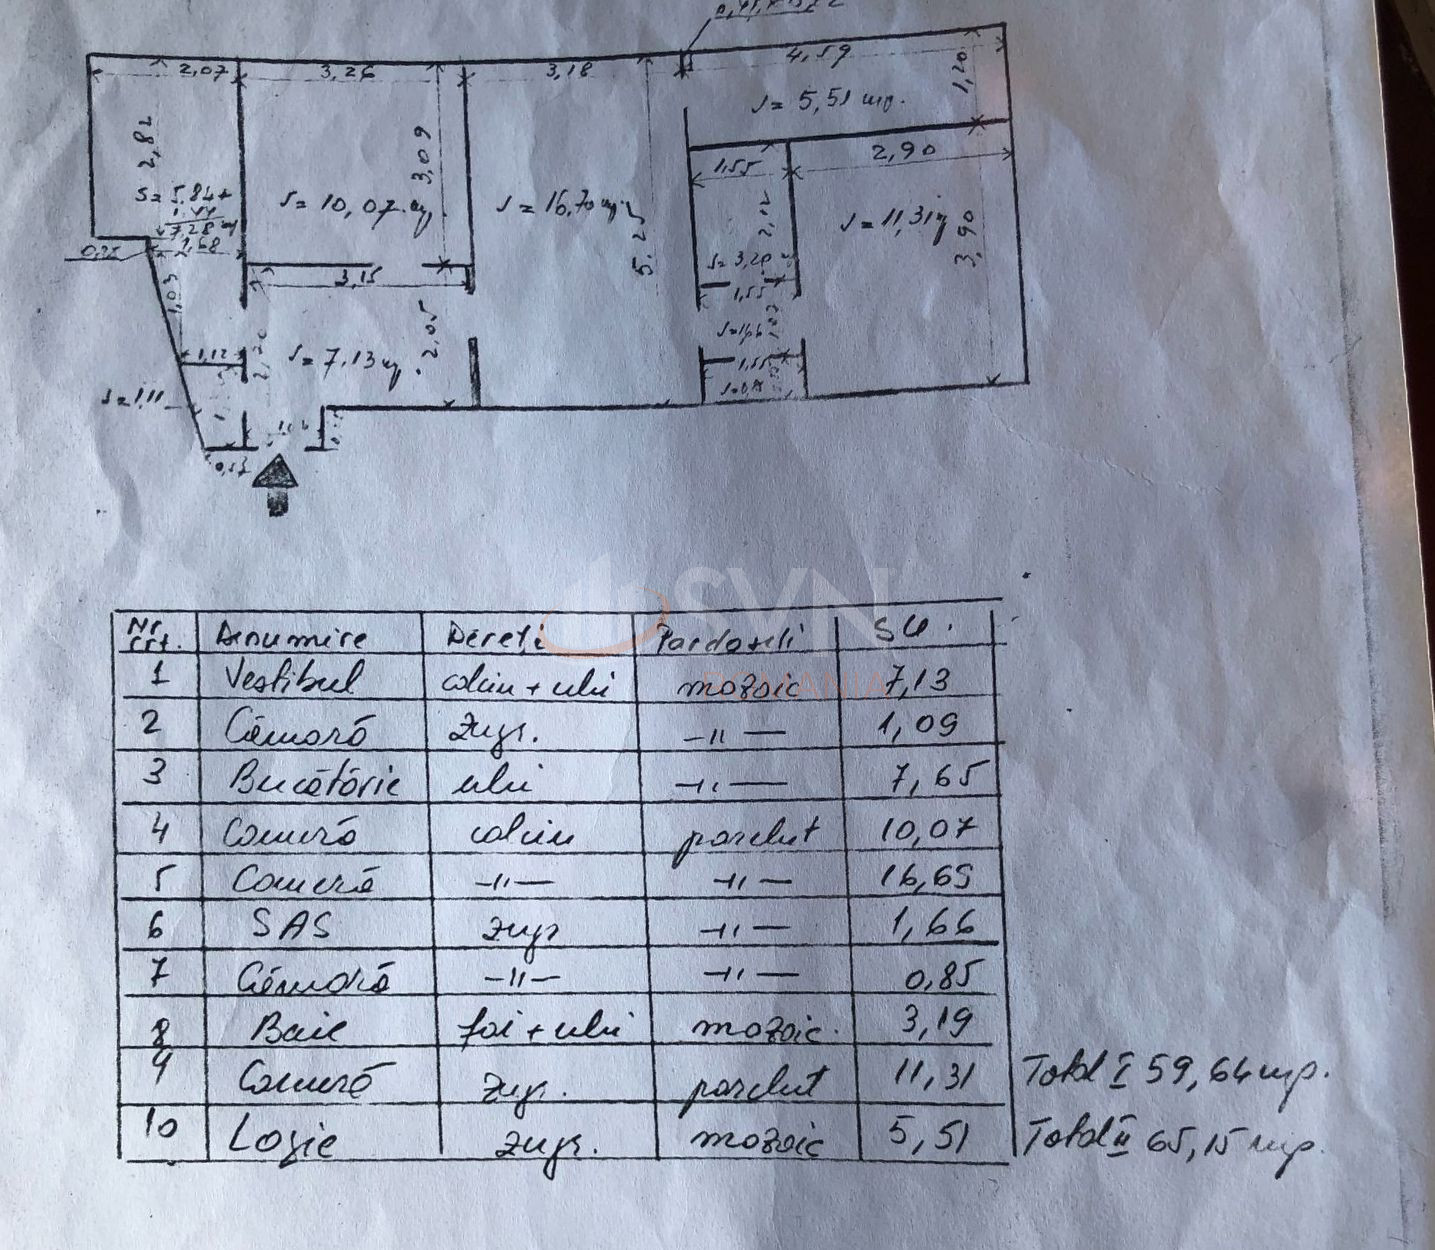 2,07 3,26 3,18 4,59
1,20
S= 5,51 mp.
2,82
3,09
1,55 2,90
S= 5,84+
1,44
7,28
1,68
S= 10,07
S= 16,70
5,25
S= 11,31
3,90
S= 3,20
1,55
1,03
3,15
2,05
1,12
S= 7,13
S=1,66
1,55
S=1,11
SVN
ROMANIA
Nr. crt. Denumire Pereți Pardoseli SU.
1 Vestibul calciu + ulei mozaic 7,13
2 Cămară zugr. -"- 1,09
3 Bucătărie ulei -"- 7,65
4 Cameră calciu parchet 10,07
5 Cameră -"- -"- 16,65
6 SAS zugr -"- 1,66
7 Cămară -"- -"- 0,85
8 Baie fai + ulei mozaic 3,19
9 Cameră zugr. parchet 11,31 Total I 59,64 mp.
10 Logie zugr. mozaic 5,51 Total II 65,15 mp.